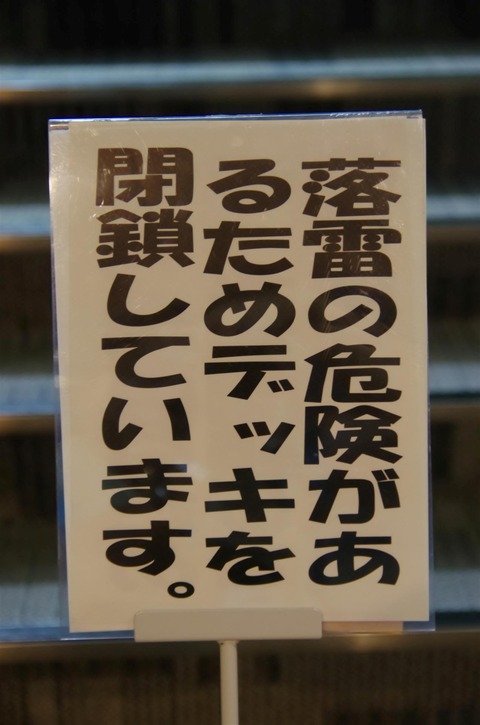 落雷の危険があ
るためデッキを
閉鎖しています。